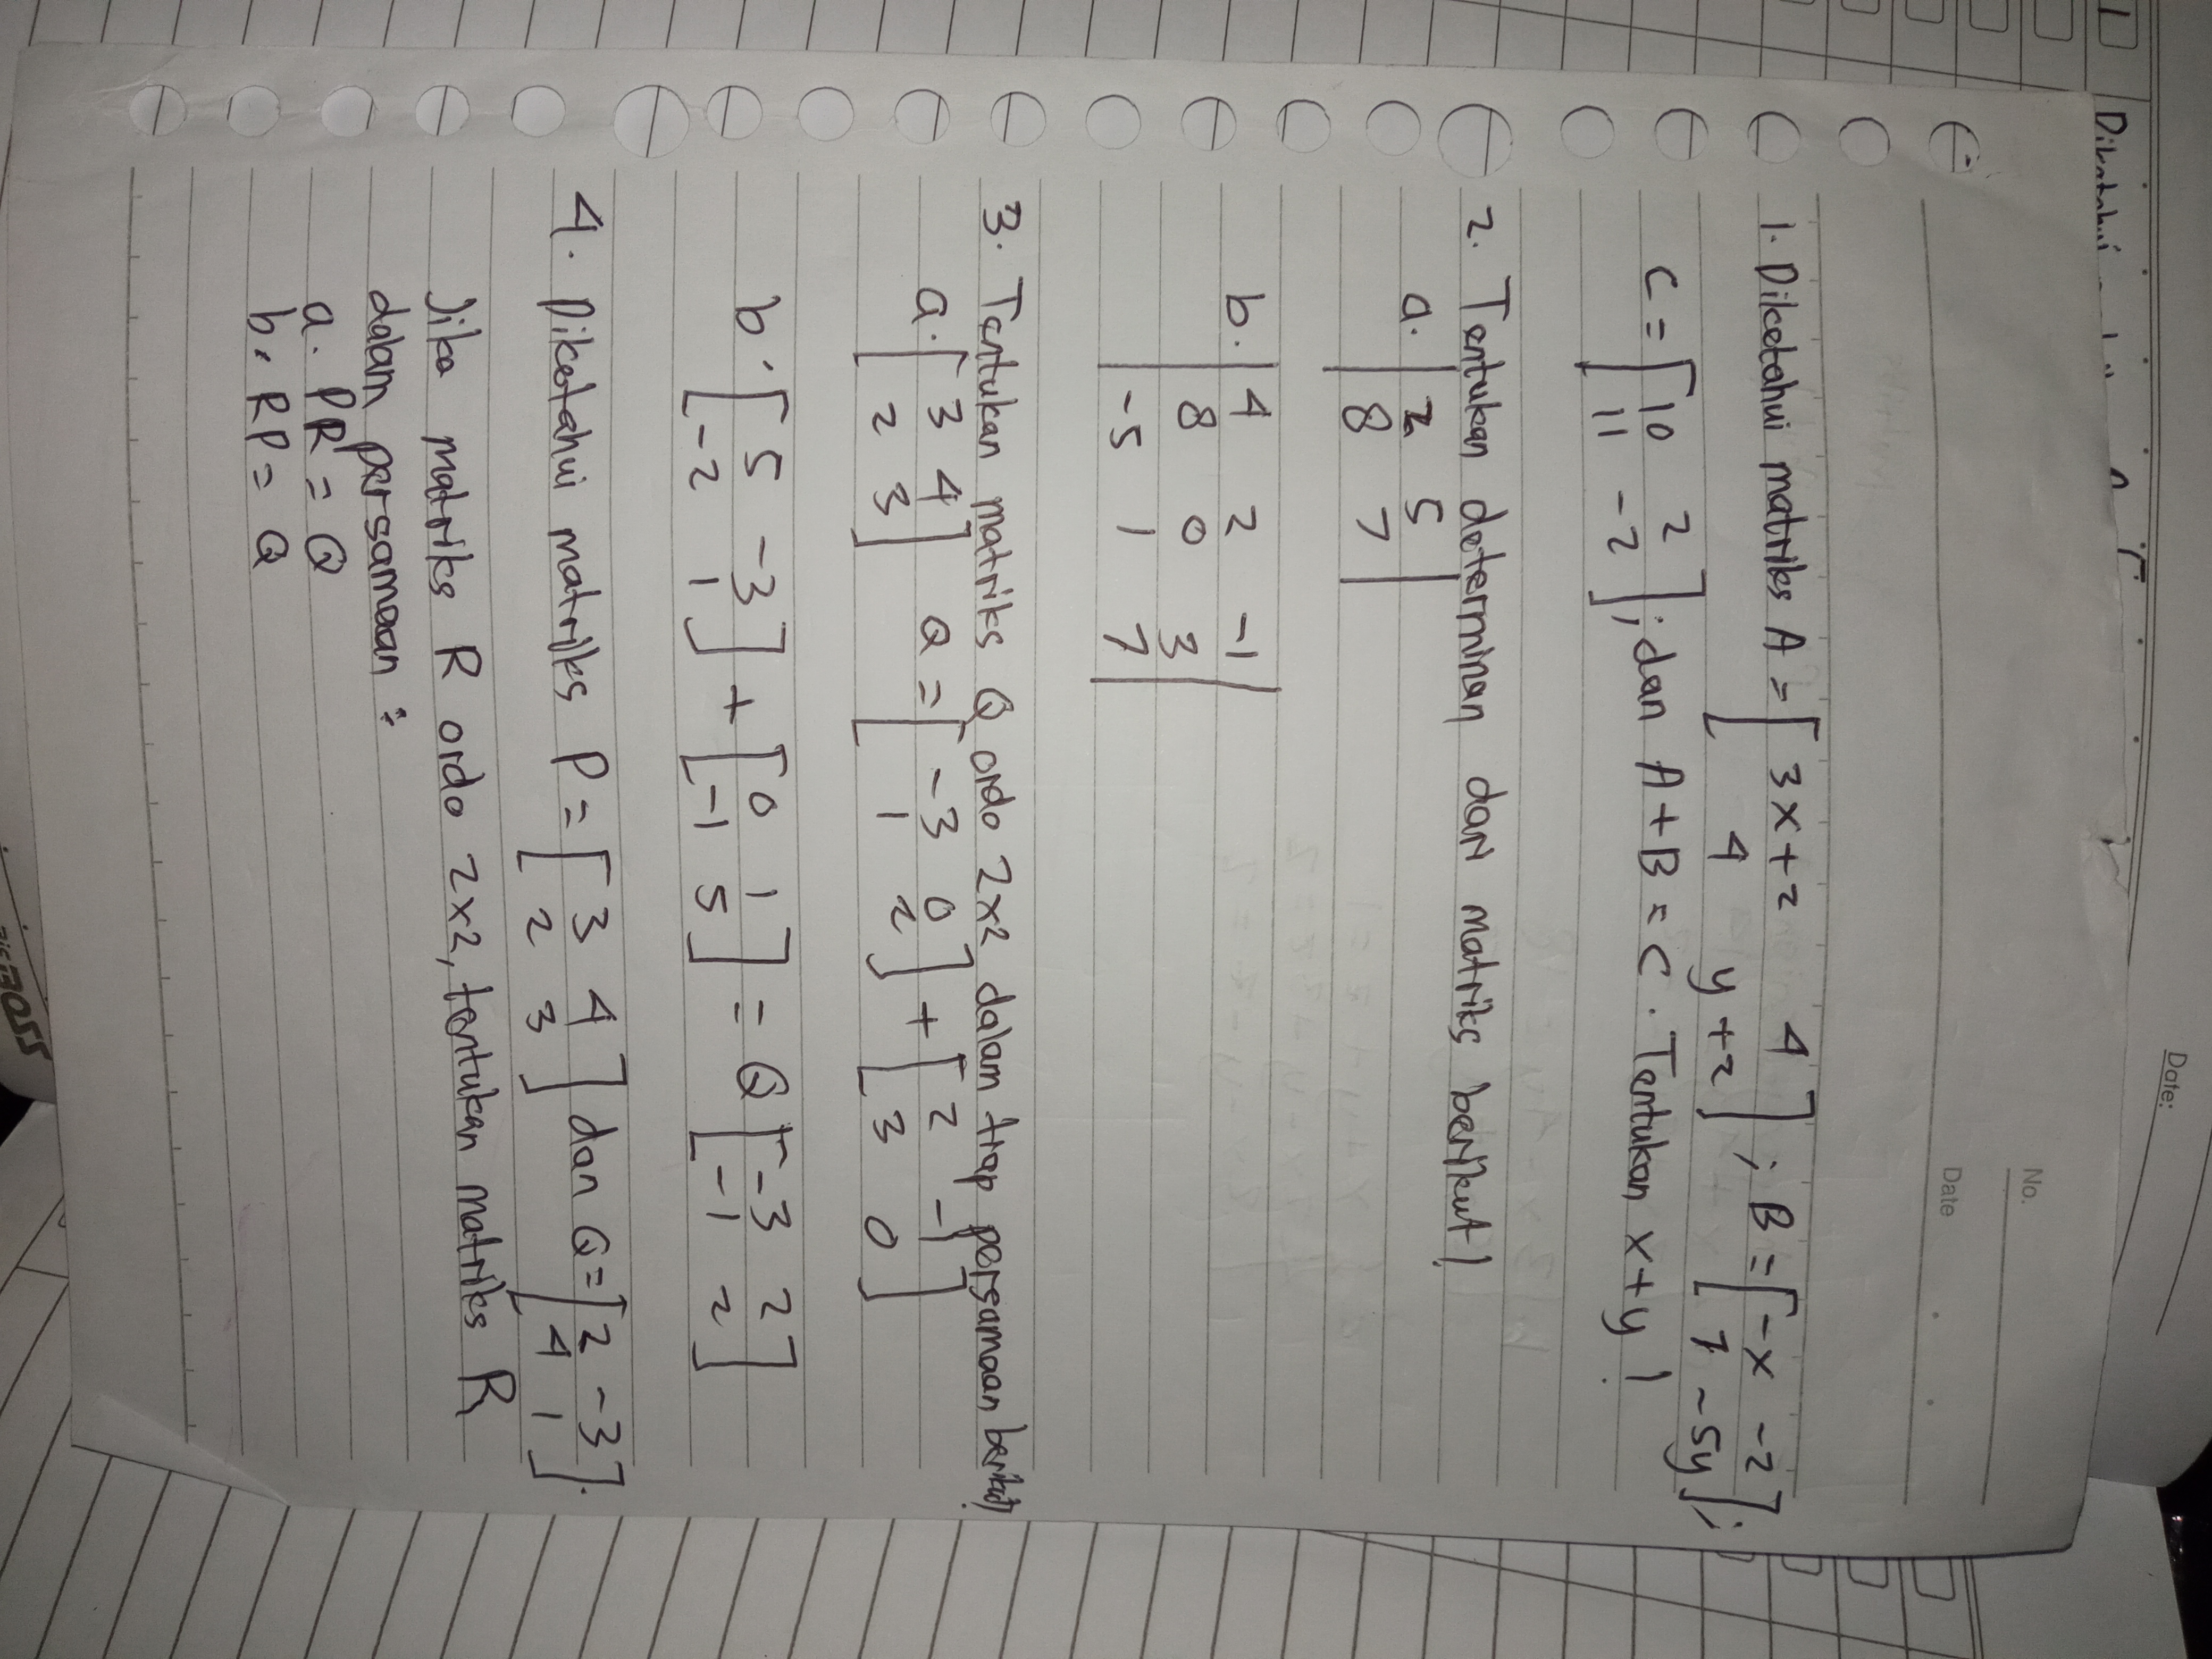 No.
Date
Date:
1. Diketahui matriks A = [ 3x+2 4 ] ; B = [ -x -2 ];
[ 4 y+2 ] [ 7 -5y ]
C = [ 10 2 ] ; dan A+B = C. Tentukan x+y !
[ 11 -2 ]
2. Tentukan determinan dan matriks berikut!
a. | 2 5 |
| 8 7 |
b. | 4 2 -1 |
| 8 0 3 |
| -5 1 7 |
3. Tentukan matriks Q ordo 2x2 dalam tiap persamaan berikut!
a. [ 3 4 ] Q = [ -3 0 ] + [ 2 -1 ]
[ 2 3 ] [ 1 2 ] [ 3 0 ]
b. [ 5 -3 ] + [ 0 1 ] = Q [ -3 2 ]
[ -2 1 ] [ -1 5 ] [ -1 2 ]
4. Diketahui matriks P = [ 3 4 ] dan Q = [ 2 -3 ].
[ 2 3 ] [ 4 1 ]
Jika matriks R ordo 2x2, tentukan matriks R
dalam persamaan :
a. PR = Q
b. RP = Q